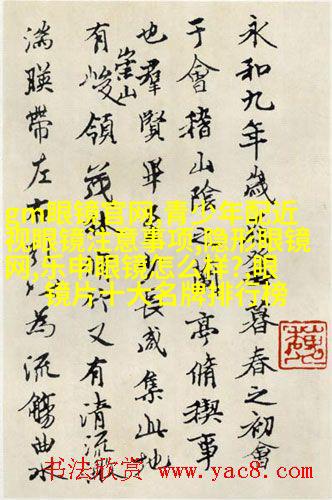 永和九年歲暮春之初會
于會稽山陰之亭脩稧事
也羣賢畢少長咸集此地
有崇山峻領茂林又有清流激
湍暎帶左右為流觴曲水
gm眼镜官网,青少年配近
视眼镜注意事项,隐形眼镜
网,乐申眼镜怎么样?眼
镜片十大名牌排行榜
书法欣赏 www.yac8.com